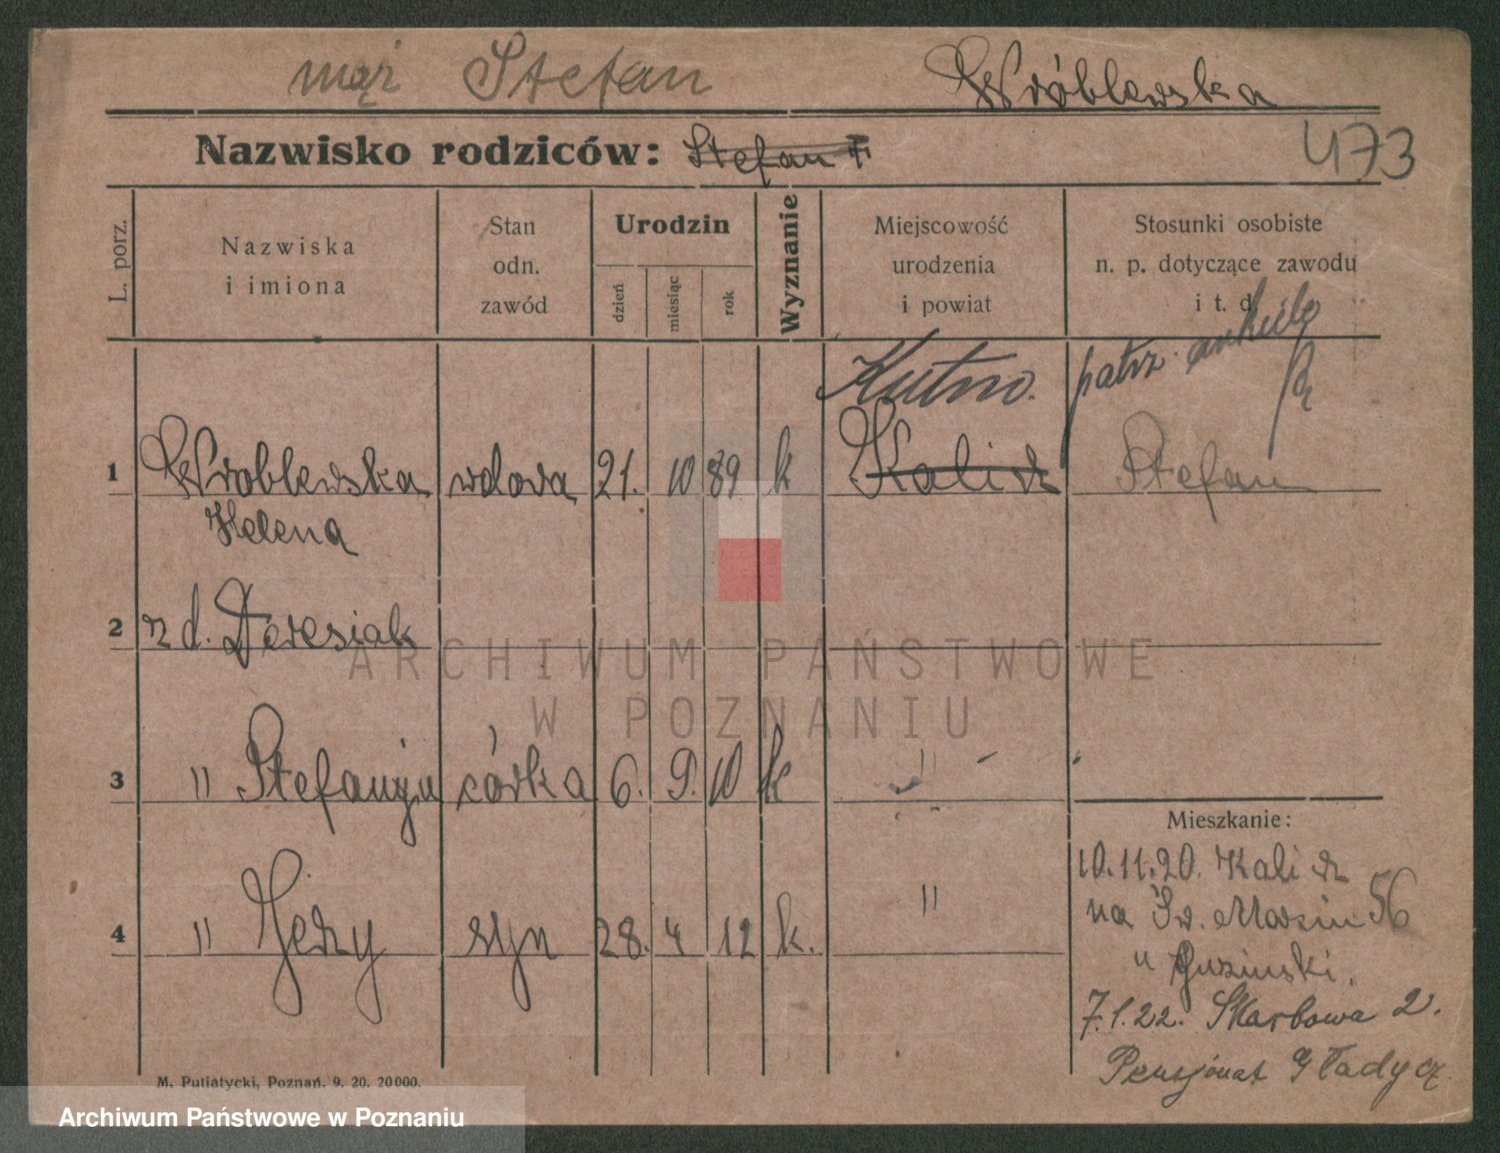 mąż Stefan Wróblewska
Nazwisko rodziców: Stefan
473
L. porz.
Nazwiska
i imiona
Stan
odn.
zawód
Urodzin
dzień
miesiąc
rok
Wyznanie
Miejscowość
urodzenia
i powiat
Stosunki osobiste
n. p. dotyczące zawodu
i t. d.
Kutno. patrz ankietę
1 Wroblewska wdowa 21. 10 89 k Kalisz Stefan
Helena
2 z d. Deresiak
3 " Stefanja córka 6. 9. 10 k "
Mieszkanie:
4 " Jerzy syn 28. 4 12 k. "
10.11.20. Kalisz
na Św. Marcin 56
" Guzinski.
7.1.22. Skarbowa 2.
Pensjonat Gładycz
M. Putiatycki, Poznań. 9. 20. 20000.
ARCHIWUM PAŃSTWOWE
W POZNANIU
Archiwum Państwowe w Poznaniu